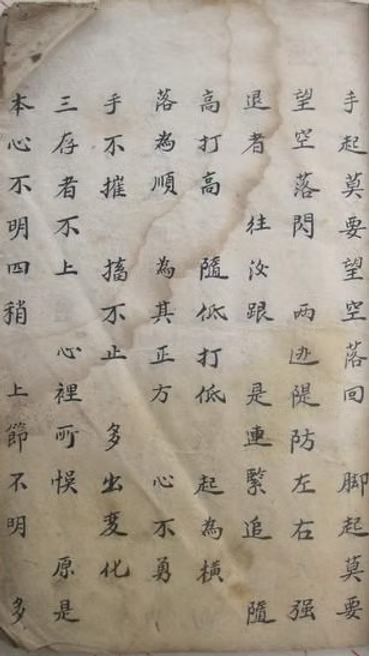 手起莫要望空落回 脚起莫要
望空落閃 两迯隄防左右 强
退者 往汝跟 是連緊追 隨
高打高 隨低打低 起為横
落為順 為其正方 心不勇
手不摧 搐不止 多出変化
三存者不上 心裡所悞 原是
本心不明四稍 上節不明 多